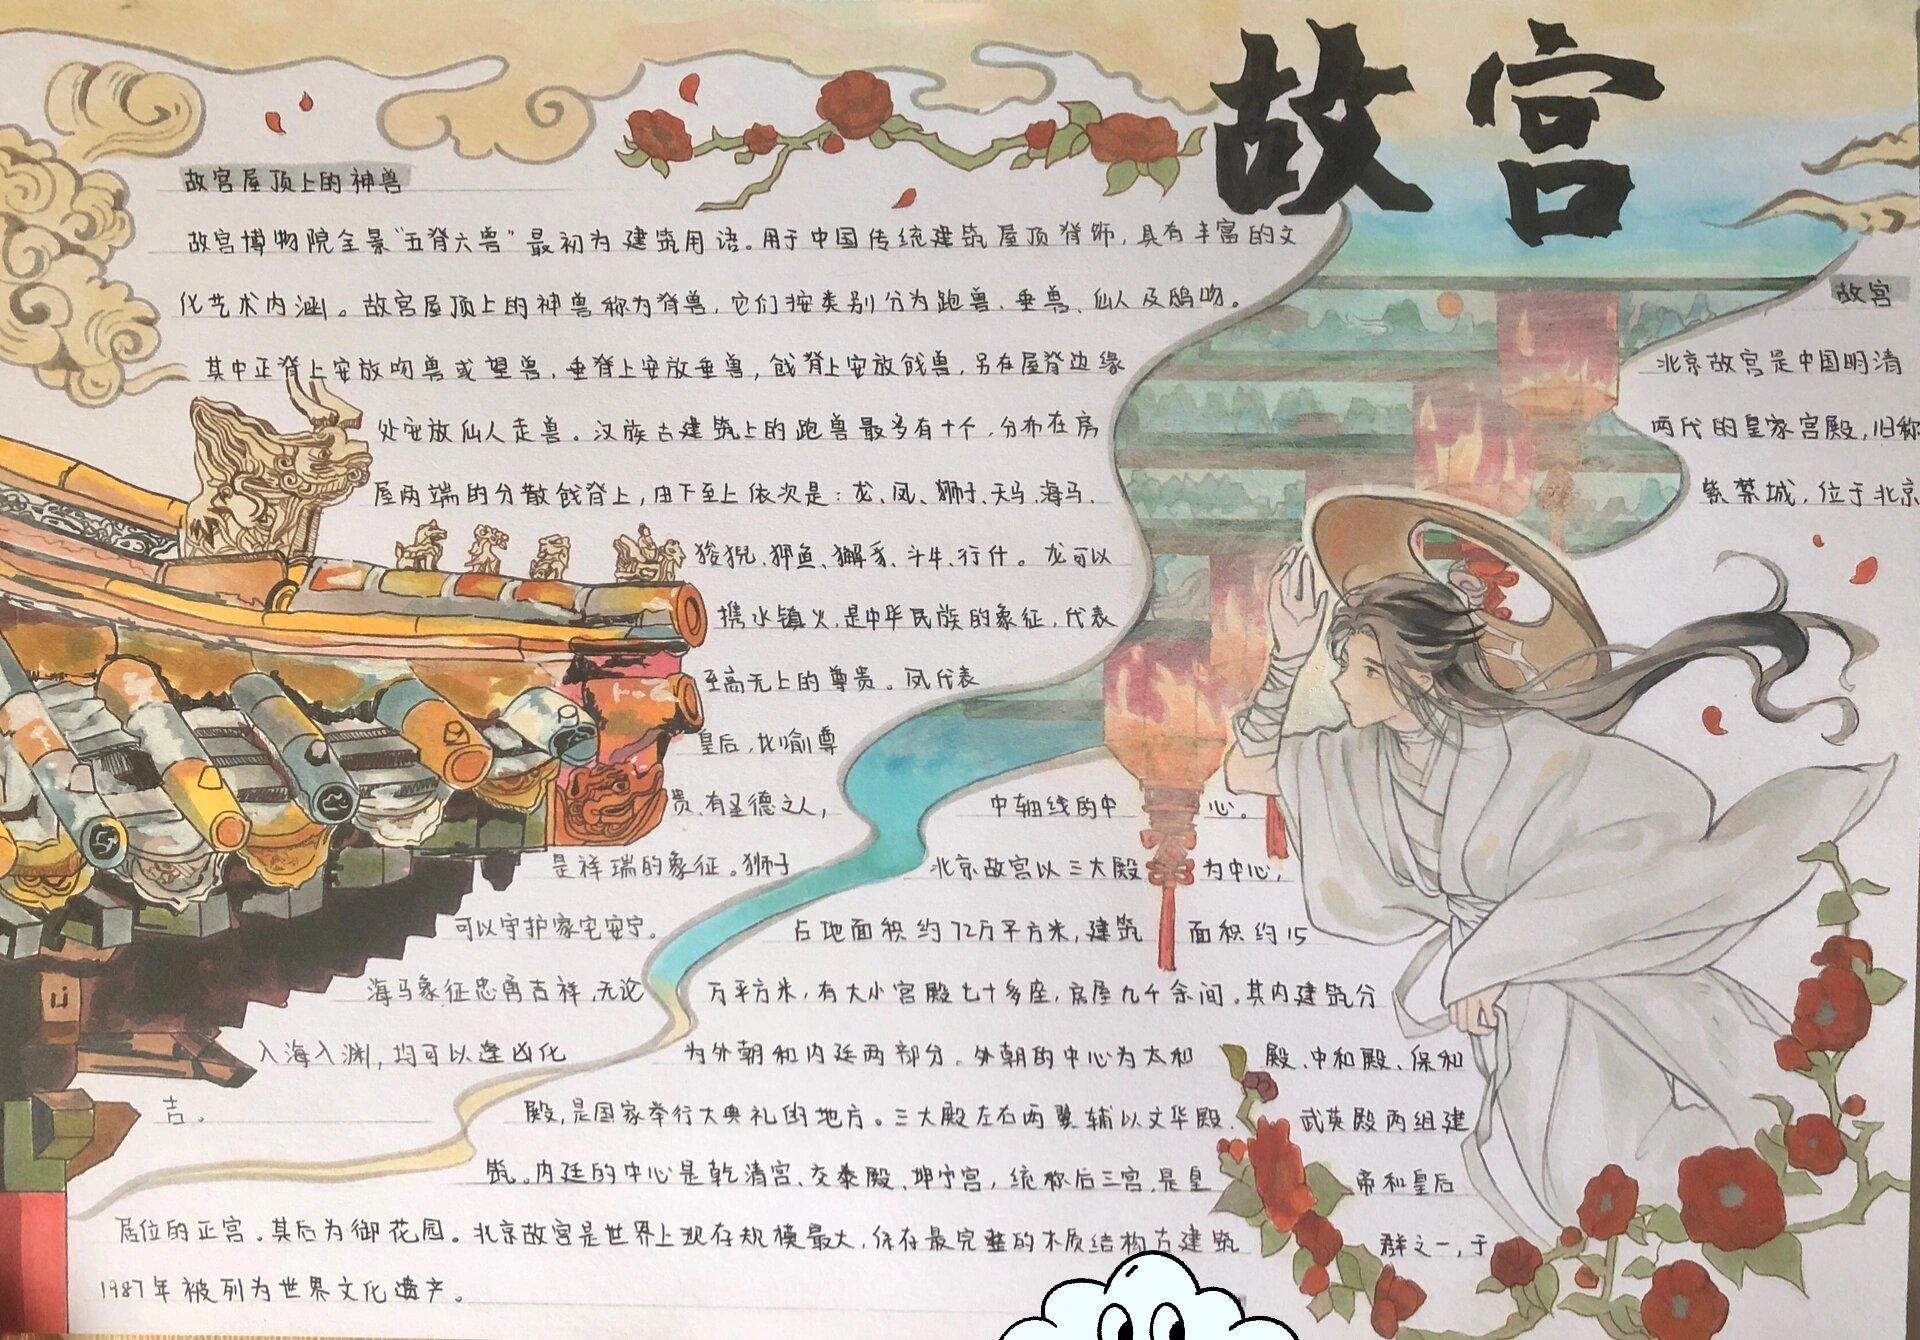 故宫
故宫屋顶上的神兽
故宫博物院全景“五脊六兽”最初为建筑用语。用于中国传统建筑屋顶脊饰,具有丰富的文
化艺术内涵。故宫屋顶上的神兽称为脊兽,它们按类别分为跑兽、垂兽、仙人及鸱吻。
其中正脊上安放吻兽或望兽,垂脊上安放垂兽,戗脊上安放戗兽,另在屋脊边缘
处安放仙人走兽。汉族古建筑上的跑兽最多有十个,分布在房
屋两端的分散戗脊上,由下至上依次是:龙、凤、狮子、天马、海马、
狻猊、狎鱼、獬豸、斗牛、行什。龙可以
携水镇火,是中华民族的象征,代表
至高无上的尊贵。凤代表
皇后,比喻尊
贵、有圣德之人,
是祥瑞的象征。狮子
可以守护家宅安宁。
海马象征忠勇吉祥,无论
入海入渊,均可以逢凶化
吉。
故宫
北京故宫是中国明清
两代的皇家宫殿,旧称
紫禁城,位于北京
中轴线的中心。
北京故宫以三大殿为中心,
占地面积约72万平方米,建筑面积约15
万平方米,有大小宫殿七十多座,房屋九千余间。其内建筑分
为外朝和内廷两部分。外朝的中心为太和殿、中和殿、保和
殿,是国家举行大典礼的地方。三大殿左右两翼辅以文华殿、武英殿两组建
筑。内廷的中心是乾清宫、交泰殿、坤宁宫,统称后三宫,是皇帝和皇后
居住的正宫。其后为御花园。北京故宫是世界上现存规模最大,保存最完整的木质结构古建筑群之一,于
1987年被列为世界文化遗产。